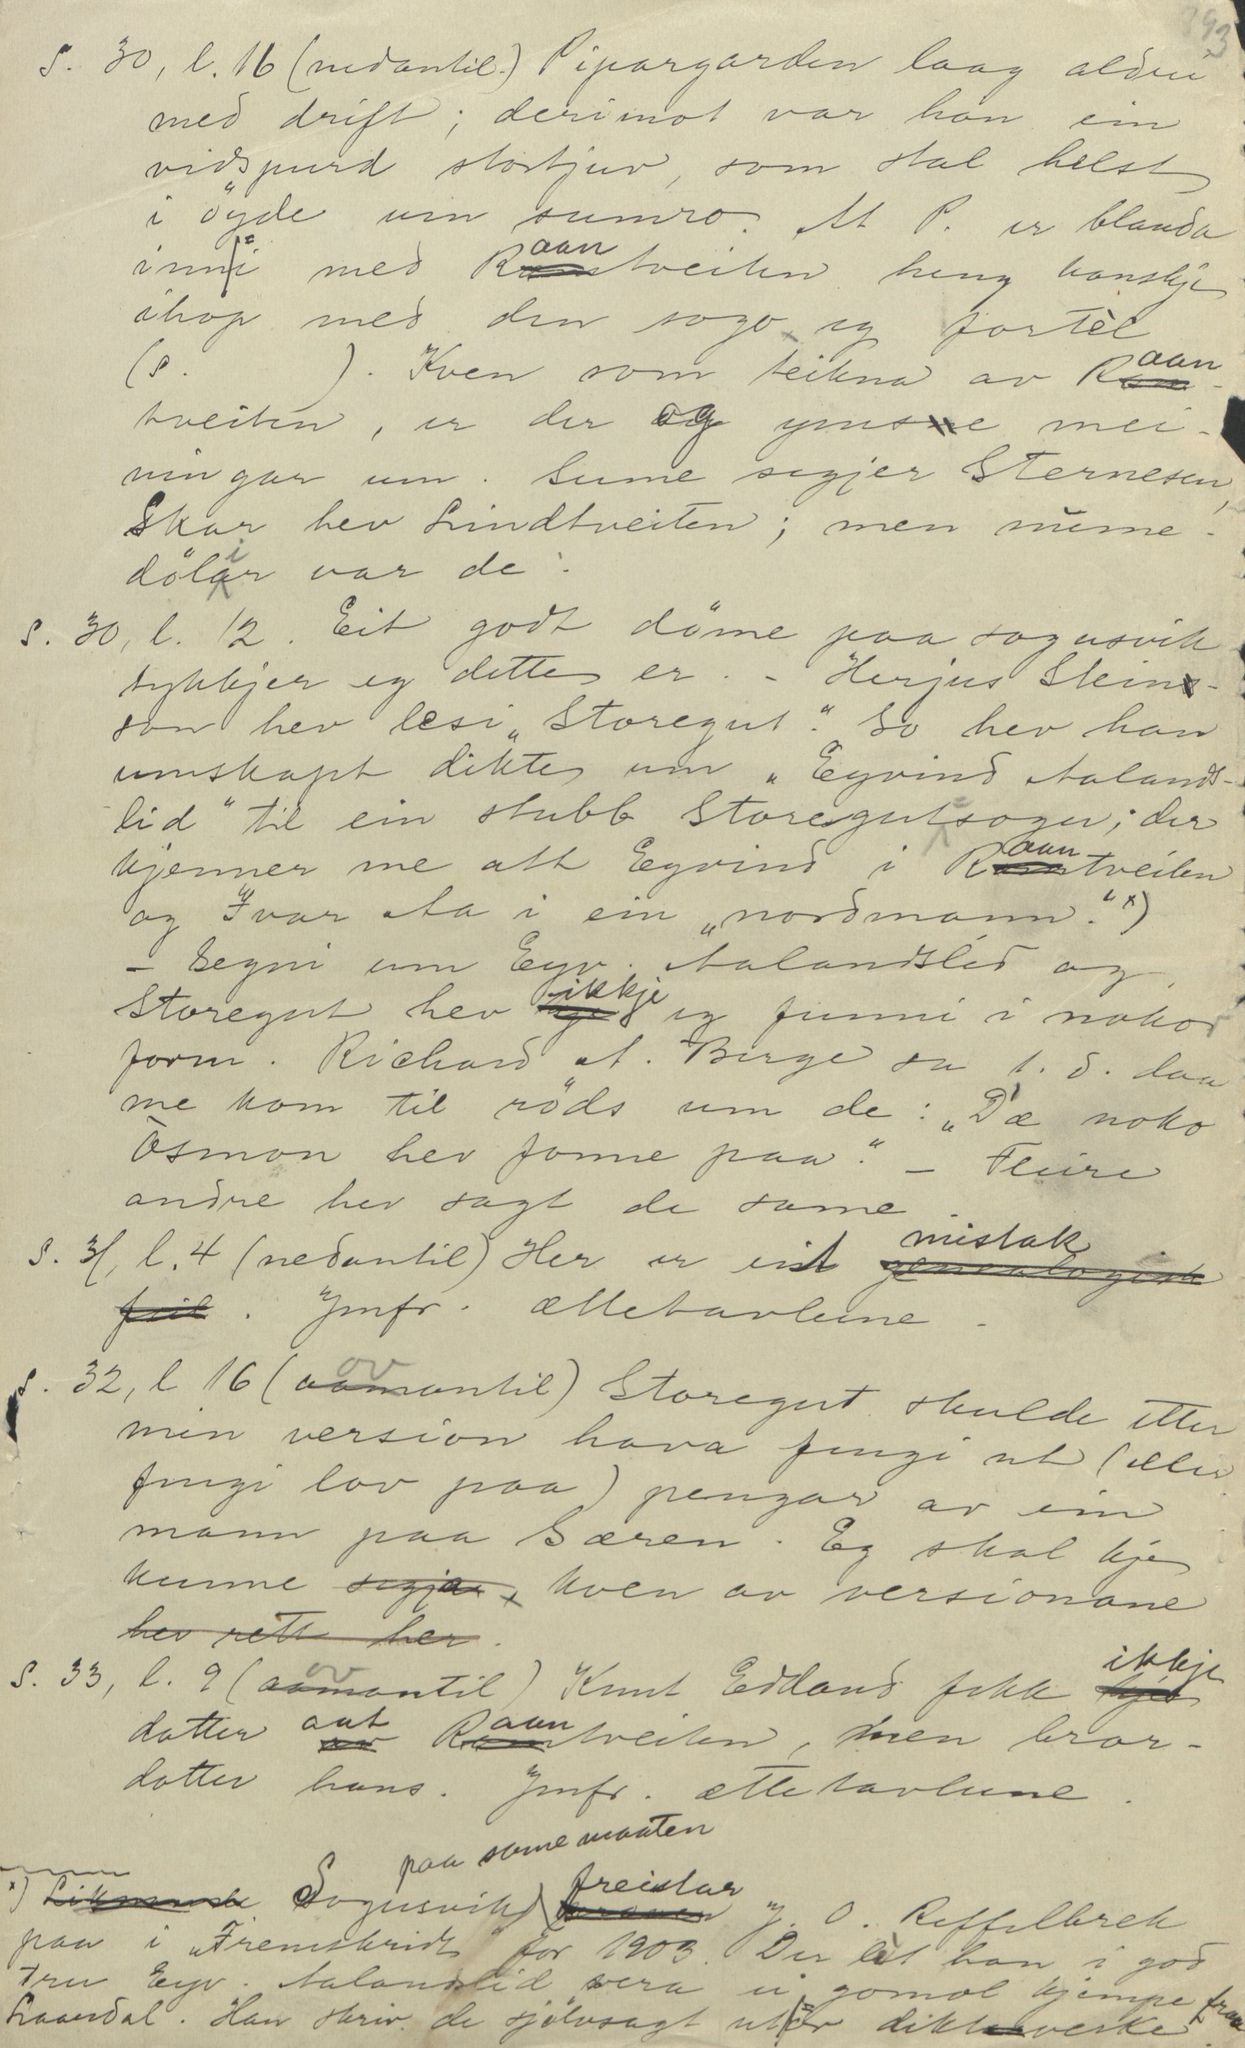 393
S. 30, l. 16 (nedantil) Pipargarden laag aldri
med drift; derimot var han ein
vidspurd stortjuv, som stal helst
i öyde um sumro. At P. er blanda
inni med Raantveiten heng kanskje
ihop med den sogo eg fortèl
(s. ). Kven som teikna av Raan-
tveiten, er der og ymse mei-
ningar um. Sume segjer Sternesen,
Skar hev Lindtveiten; men nume-
dölar var de.
S. 30, l. 12. Eit godt döme paa sogusvik
tykkjer eg dette er. - Herjus Stein-
son hev lesi „Storegut." So hev han
umskapt dikte um „Eyvind Aalands-
lid" til ein stubb Storegutsogu; der
kjenner me att Eyvind i Raantveiten
og Ivar Aa i ein „nordmann." x)
- Segni um Eyv. Aalandslid og
Storegut hev ikkje eg funni i nokor
form. Richard A. Berge sa t. d. daa
me kom til röds um de: „D'æ noko
Òsmon hev fonne paa." - Fleire
andre hev sagt de same.
S. 31, l. 4 (nedantil) Her er eit mistak
. Jmfr. ættetavlune.
S. 32, l 16 (ovantil) Storegut skulde etter
min version hava fengi ut (eller
fengi lov paa) pengar av ein
mann paa Særen. Eg skal kje
kunne segja, kven av versionane
hev rett her.
S. 33, l. 9 (ovantil) Knut Edland fekk ikkje
dotter aat Raantveiten, men bror-
dotter hans. Jmfr. ættetavlune.
paa same maaten
x) Sogusvik freistar J. O. Reffelbrek
paa i „Fremskridt" for 1903. Der lèt han i god
tru Eyv. Aalandslid vera ei gomol kjempe fraa
Laardal. Han skriv de sjölvsagt utor diktverke.